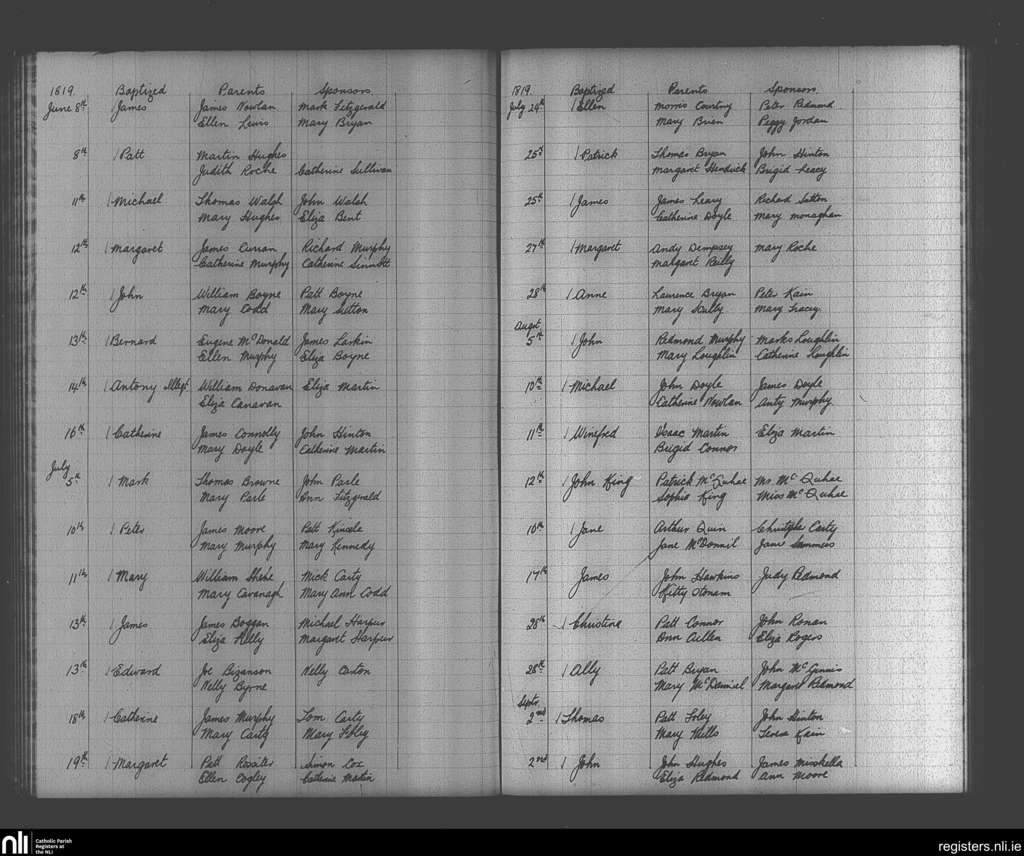 1819. Baptized Parents Sponsors.
June 8th James James Nowlan Mark Fitzgerald
Ellen Lewis Mary Bryan
8th Patt Martin Hughes
Judith Roche Catherine Sullivan
11th Michael Thomas Walsh John Walsh
Mary Hughes Eliza Bent
12th Margaret James Curran Richard Murphy
Catherine Murphy Catherine Sinnott
12th John William Boyne Patt Boyne
Mary Codd Mary Sutton
13th Bernard Eugene McDonald James Larkin
Ellen Murphy Eliza Boyne
14th Antony Illegt. William Donavan Eliza Martin
Eliza Canavan
16th Catherine James Connolly John Hinton
Mary Doyle Catherine Martin
July
5th Mark Thomas Browne John Parle
Mary Parle Ann Fitzgerald
10th Peter James Moore Patt
Mary Murphy Mary Kennedy
11th Mary William Mick Carty
Mary Cavanagh Mary Ann Codd
13th James James Boggan Michael Harpur
Eliza Kelly Margaret Harpur
13th Edward Joe Nelly
Nelly Byrne
18th Catherine James Murphy Tom Carty
Mary Carty Mary
19th Margaret Patt Rossiter Simon Cox
Ellen Cogley Catherine Martin
1819. Baptized Parents Sponsors.
July 24th Ellen Morris Peter Redmond
Mary Brien Peggy Jordan
25th Patrick Thomas Bryan John Hinton
Margaret Brigid Leacy
25th James James Leary Richard Sutton
Catherine Doyle Mary Monaghan
27th Margaret Andy Dempsey Mary Roche
Margaret Reilly
28th Anne Laurence Bryan Peter Kain
Mary Scully Mary Tracey
Augst.
5th John Redmond Murphy Marks Loughlin
Mary Loughlin Catherine Loughlin
10th Michael John Doyle James Doyle
Catherine Nowlan Anty Murphy
11th Winefred Isaac Martin Eliza Martin
Brigid Connor
12th John King Patrick McQuhae Mr McQuhae
Sophia King Miss McQuhae
10th Jane Arthur Quin Carty
Jane Jane Summers
17th James John Hawkins Judy Redmond
Kitty
28th Christine Patt Connor John Ronan
Ann Cullen Eliza Rogers
28th Ally Patt Bryan John McGinnis
Mary McDaniel Margaret Redmond
Septr.
2nd Thomas Patt Foley John Hinton
Mary Mills Teresa Kain
2nd John John Hughes James
Eliza Redmond Ann Moore
nli
Catholic Parish
Registers at
the NLI
registers.nli.ie